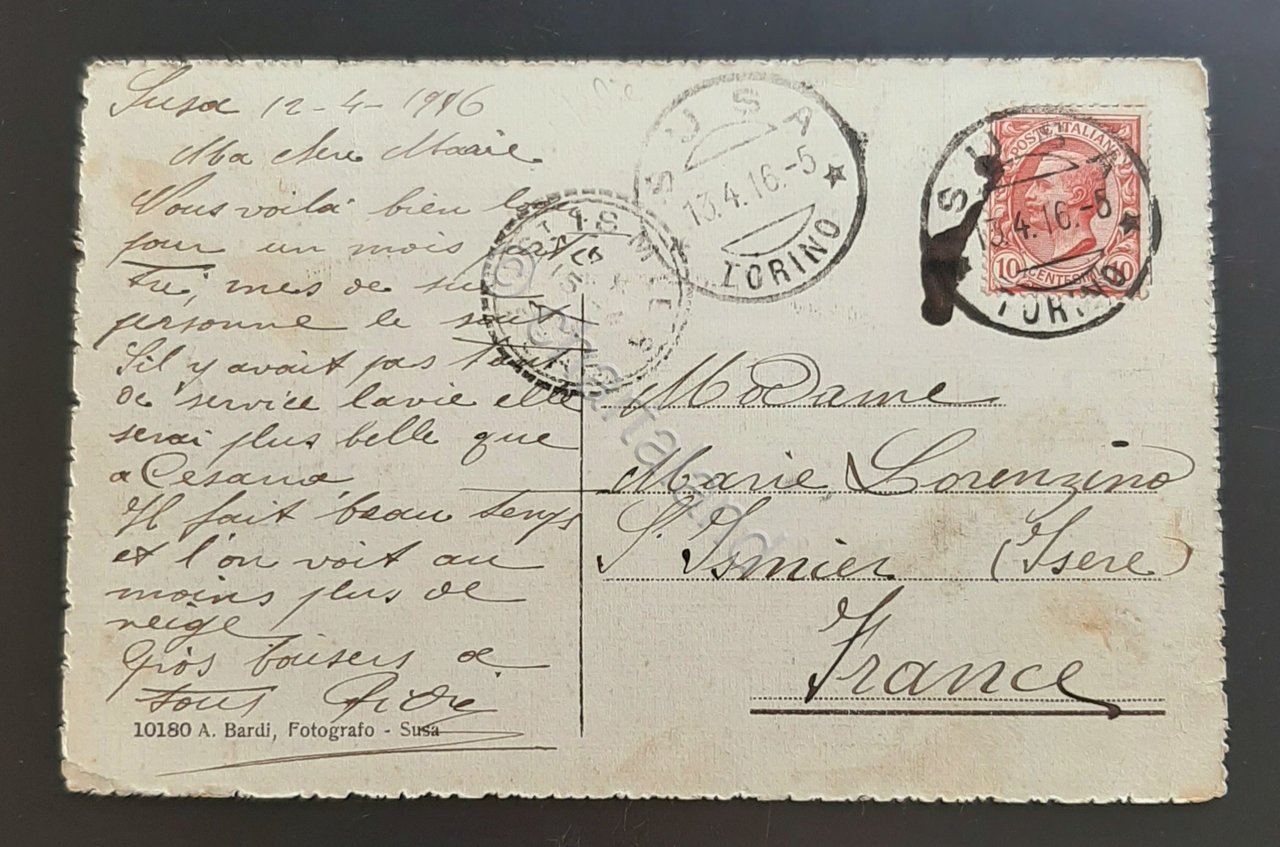 Susa 12-4-1916
Ma chere Marie
Vous voilà bien
pour un mois
tu, mes de
personne le
S'il y avait pas
de service la vie elle
serai plus belle que
a Cesana
Il fait beau temps
et l'on voit au
moins plus de
neige
Gros baisers a
tous
10180 A. Bardi, Fotografo - Susa
SUSA
13.4.16.-5
TORINO
ST ISMIER
POSTE ITALIANE
10 CENTESIMI 10
SUSA
13.4.16.-5
TORINO
Madame
Marie Lorenzino
St. Ismier (Isere)
France
© Kartaland